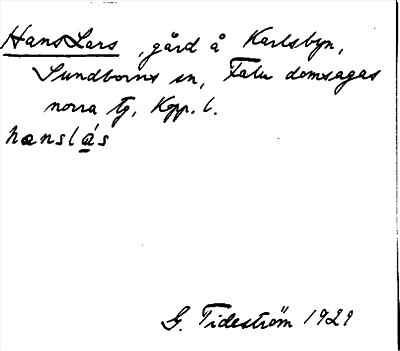 HansLars, gård å Karlsbyn,
Sundborns sn, Falu domsagas
norra tg, Kopp. l.
hanslás
G. Tideström 1929